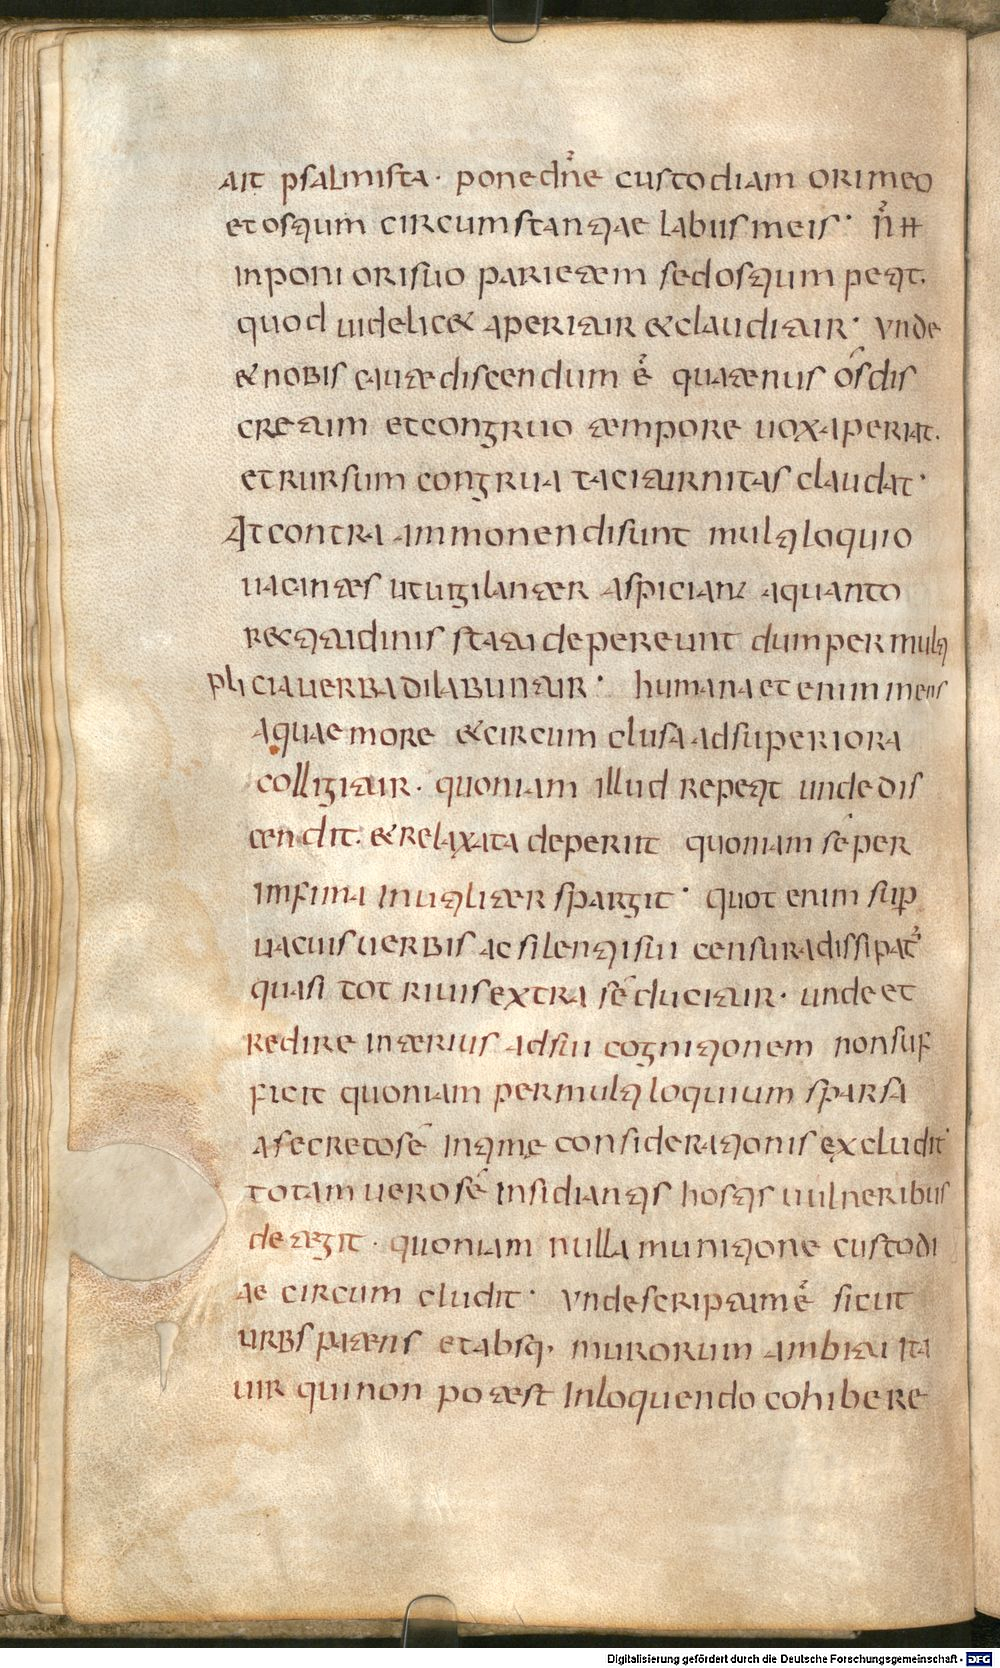 ait psalmista · pone dn̄e custodiam ori meo
et ostium circumstantiae labiis meis · n̄ ħ
inponi ori suo parietem sed ostium petit.
quod uidelicet aperitur & clauditur · vnde
& nobis caute discendum ē quatenus os̄ dis
cretum et congruo tempore uox aperiat.
et rursum congrua taciturnitas claudat ·
At contra ammonendi sunt multiloquio
uacantes ut uigilanter aspiciant a quanto
rectitudinis statu depereunt dum per multi
plicia uerba dilabuntur · humana etenim mens
aquae more & circumclusa ad superiora
colligitur · quoniam illud repetit unde dis
cendit. & relaxata deperiit quoniam sēper
imfima inutiliter spargit · quot enim sup̱
uacuis uerbis ac silentii sui censura dissipat̄
quasi tot riuis extra sē ducitur · unde et
redire interius ad sui cognitionem non suf
ficit quoniam per multiloquium sparsa
a secreto sē intimę considerationis excludit ·
totam uero sē insidiantis hostis uulneribus
detegit · quoniam nulla munitione custodi
ae circumcludit · vnde scriptum ē sicut
urbs patens et absq· murorum ambitu ita
uir qui non potest in loquendo cohibere
Digitalisierung gefördert durch die Deutsche Forschungsgemeinschaft - DFG